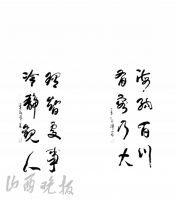 海纳百川
有容乃大
理智处事
冷静观人
山西晚报